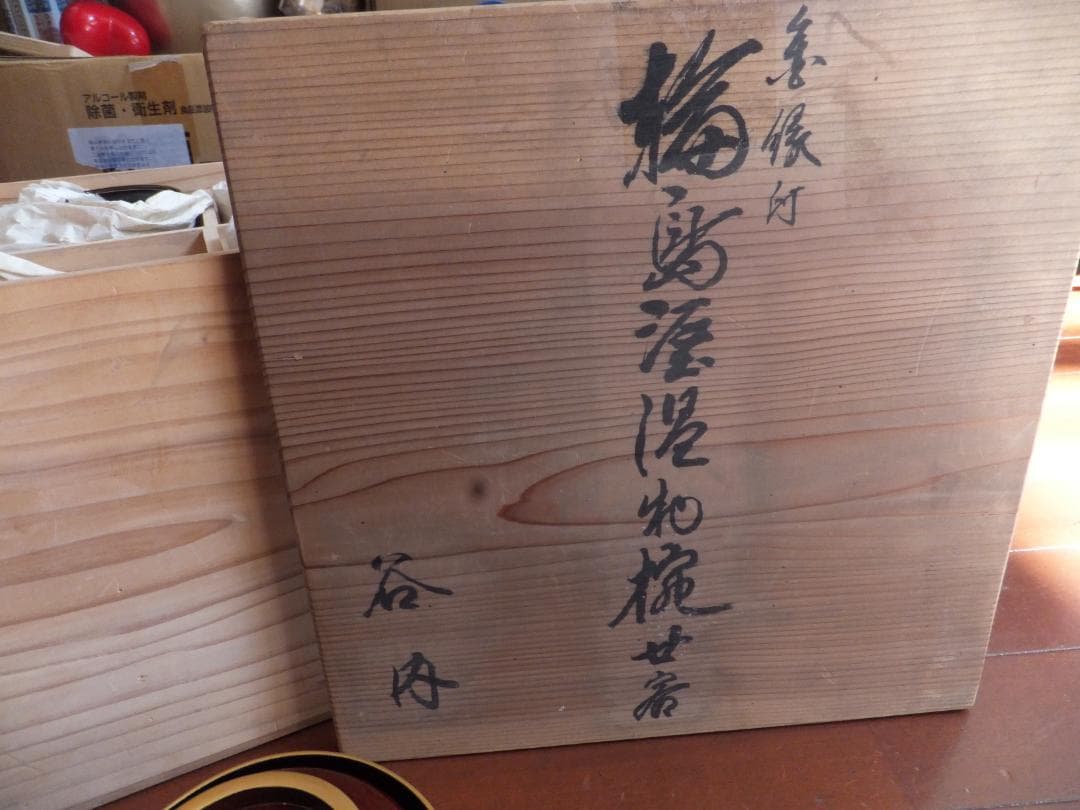 金縁付
輪島塗温物椀廿客
谷内
アルコール製剤
除菌・衛生剤